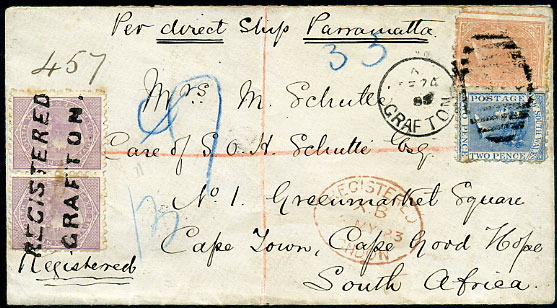 Per direct Ship Parramatta
457
33
Mrs M. Schutte
Care of S.O.H. Schutte Esq
No 1. Greenmarket Square
Cape Town, Cape Good Hope
South Africa.
Registered
REGISTERED
GRAFTON,
GRAFTON
POSTAGE
TWO PENCE
REGISTERED
MY 23
LONDON